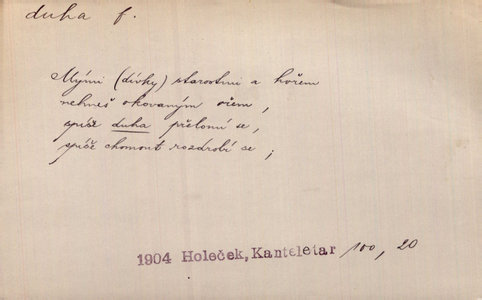 duha f.
Mými (dívky) starostmi a hořem
nehneš okovaným ořem,
spíše duha přelomí se,
spíše chomout rozdrobí se;
1904 Holeček, Kanteletar 100, 20